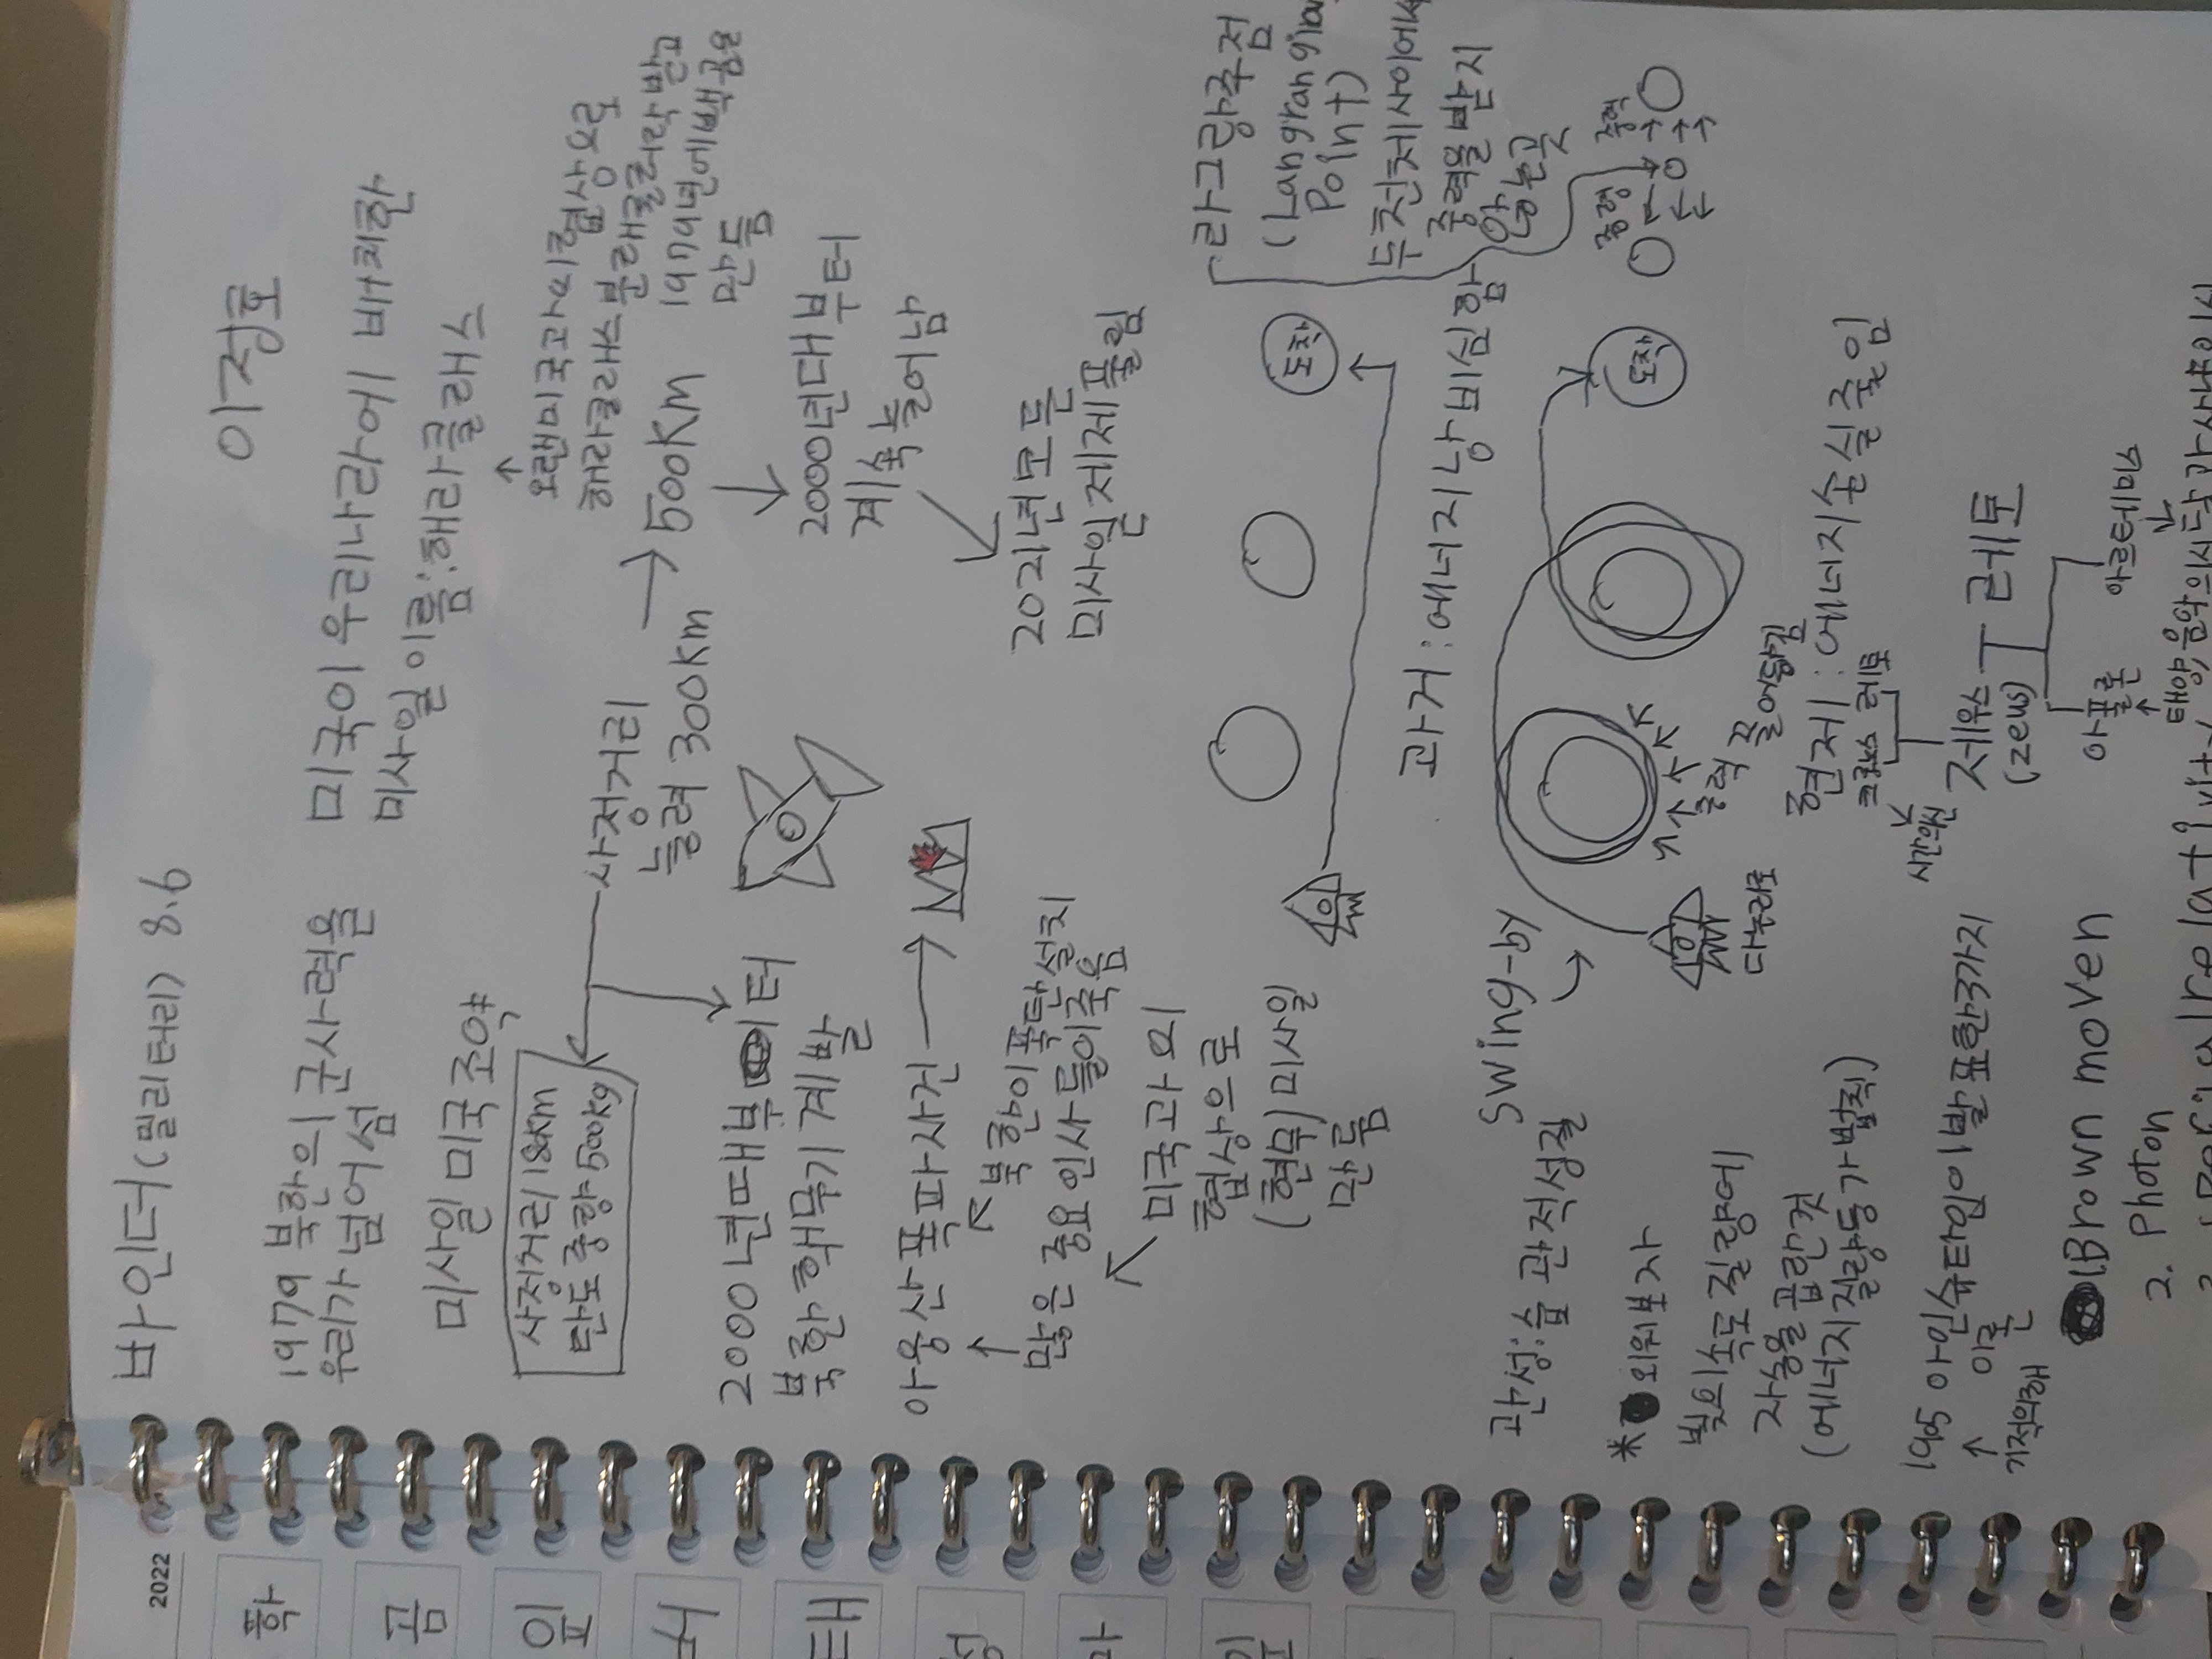 바인더(밀리터리) 8.6
이정호
1979 북한의 군사력을
우리가 넘어섬
미사일 미국 조약
사정거리 18km
탄도 중량 500kg
미국이 우리나라에 배치한
미사일 이름:해라클래스
↑
오랜 미국과의 협상으로
해라클래스
1979년에 백곰을
만듬
사정거리
늘려 300km
→ 500km
2000년대부터
계속 늘어남
2021년 모든
미사일 제제 풀림
2000년때부터
북한 핵무기 계발
아웅산 폭파사건 →
북한이 폭탄 설치
많은 중요 인사들이 죽음
미국과의
협상으로
(현무)미사일
만듬
도착
과거:에너지 낭비 심함
라그랑주점
(Langrangian
Point)
두 천체 사이에서
중력을 받지
않는 곳
중력 중력
관성:습관적 성질
swing-by
다누리호
중력
끌어당김
도착
현제:에너지 손실 줄임
*외워보자
빛의 속도 질량에
자승을 곱한 것
(에너지 질량 등가 법칙)
크로노스 레토
시간의신
제우스 레토
(zeus)
아폴론 아르테미스
1905 아인슈타인이 발표한 3가지
↑
기적의해
1Brown moven
2. Photon